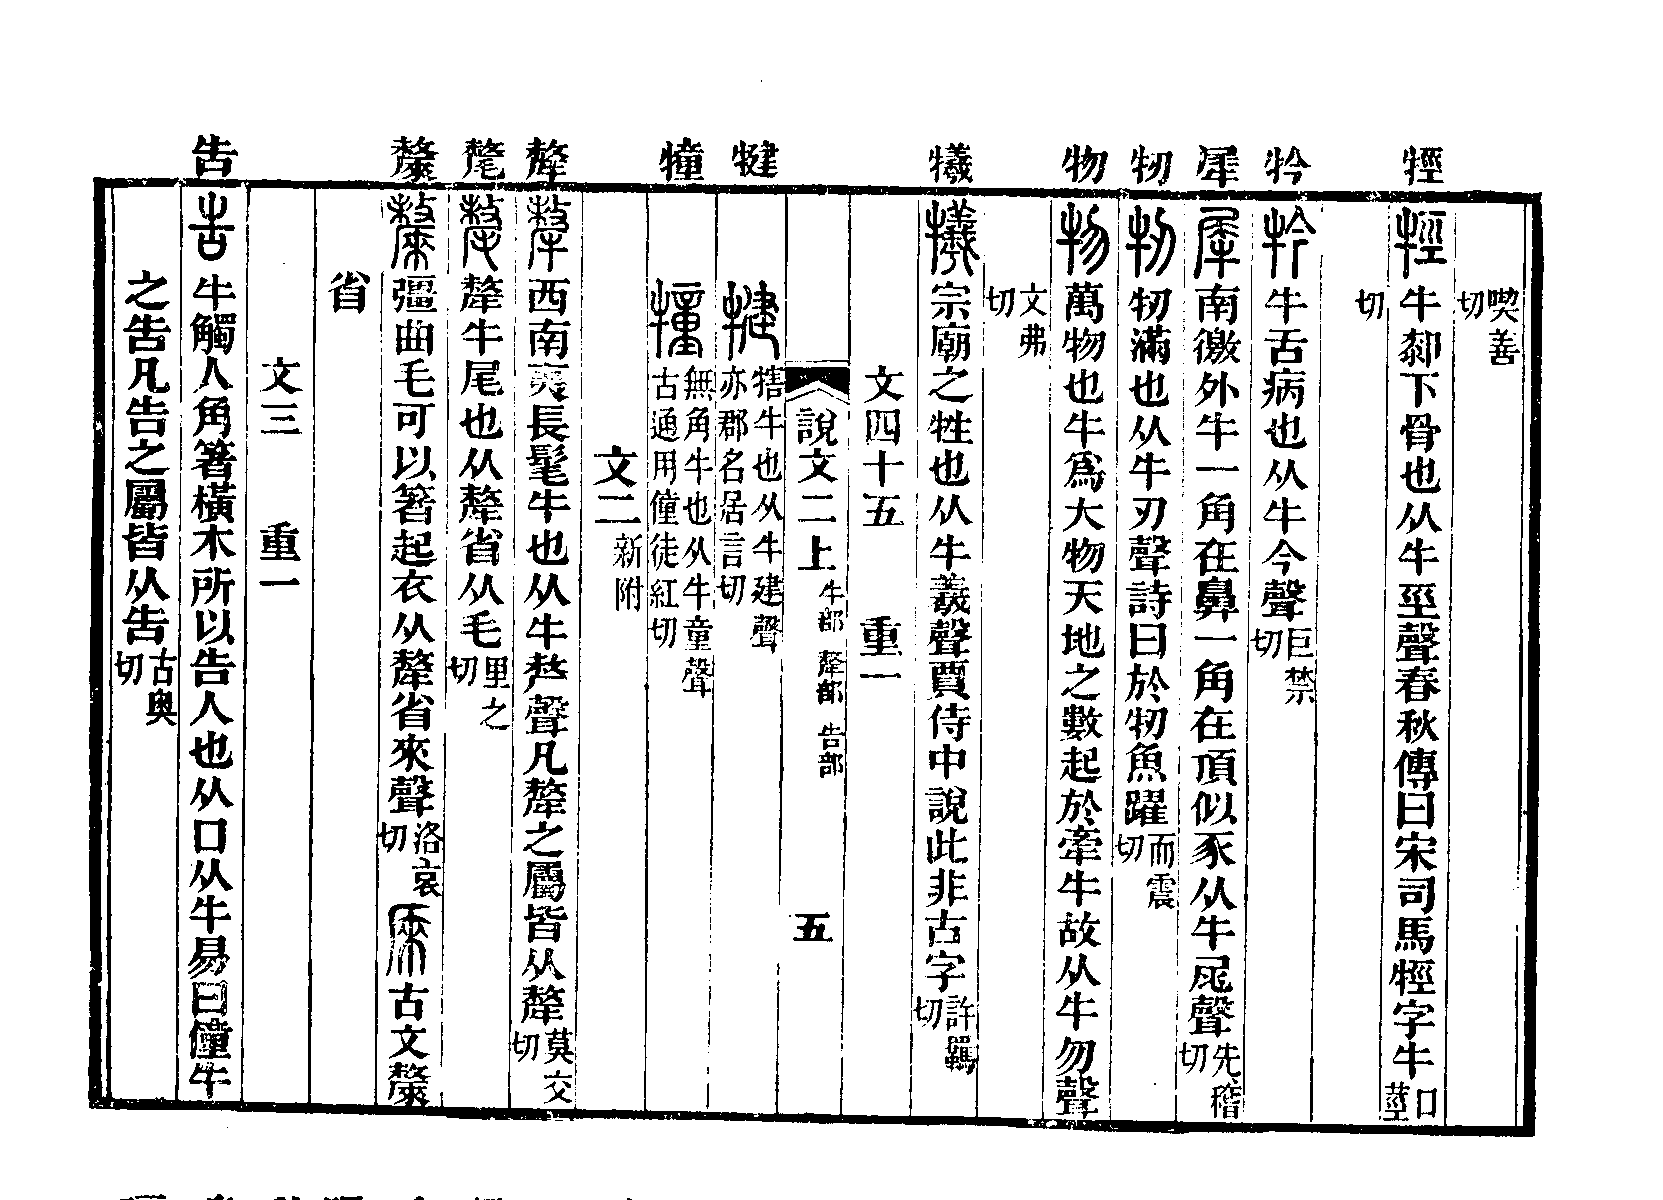 喫善切
牼 牼 牛䣛下骨也从牛巠聲春秋傳曰宋司馬牼字牛口莖
切
牞 牛舌病也从牛今聲巨禁切
犀 犀 南徼外牛一角在鼻一角在頂似豕从牛尾聲先稽切
牣 牣 牣滿也从牛刃聲詩曰於牣魚躍而震切
物 物 萬物也牛爲大物天地之數起於牽牛故从牛勿聲
文弗切
犧 犧 宗廟之牲也从牛羲聲賈侍中說此非古字許羈切
文四十五 重一
說文二上 牛部 犛部 告部 五
犍 犍 犗牛也从牛建聲亦郡名居言切
犝 犝 無角牛也从牛童聲古通用僮徒紅切
文二新附
犛 犛 西南夷長髦牛也从牛𠩺聲凡犛之屬皆从犛莫交切
氂 氂 犛牛尾也从犛省从毛里之切
斄 斄 彊曲毛可以箸起衣从犛省來聲洛哀切 𣟄 古文斄
省
文三 重一
告 告 牛觸人角箸橫木所以告人也从口从牛易曰僮牛
之告凡告之屬皆从告古奥切